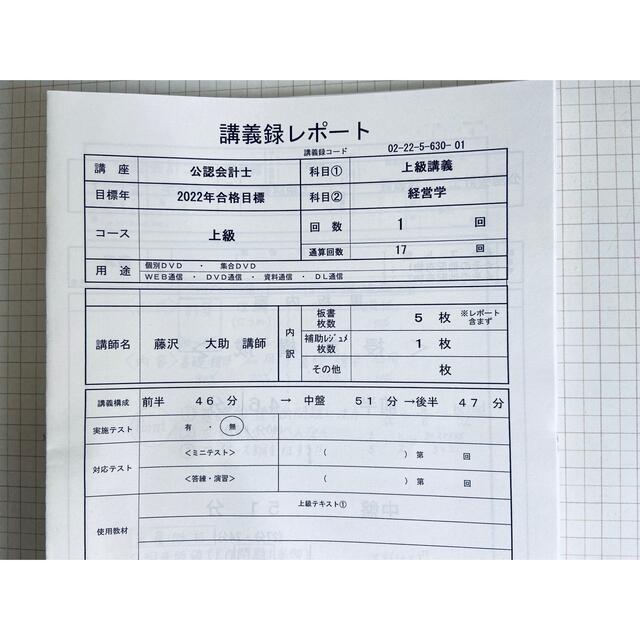 講義録レポート
講義録コード 02-22-5-630-01
講座 公認会計士 科目① 上級講義
目標年 2022年合格目標 科目② 経営学
コース 上級 回数 1 回
通算回数 17 回
用途 個別DVD ・ 集合DVD
WEB通信 ・ DVD通信 ・ 資料通信 ・ DL通信
講師名 藤沢 大助 講師 内訳 板書枚数 5 枚 ※レポート含まず
補助レジュメ枚数 1 枚
その他 枚
講義構成 前半 46 分 → 中盤 51 分 →後半 47 分
実施テスト 有 ・ 無
対応テスト <ミニテスト> ( ) 第 回
<答練・演習> ( ) 第 回
使用教材 上級テキスト①